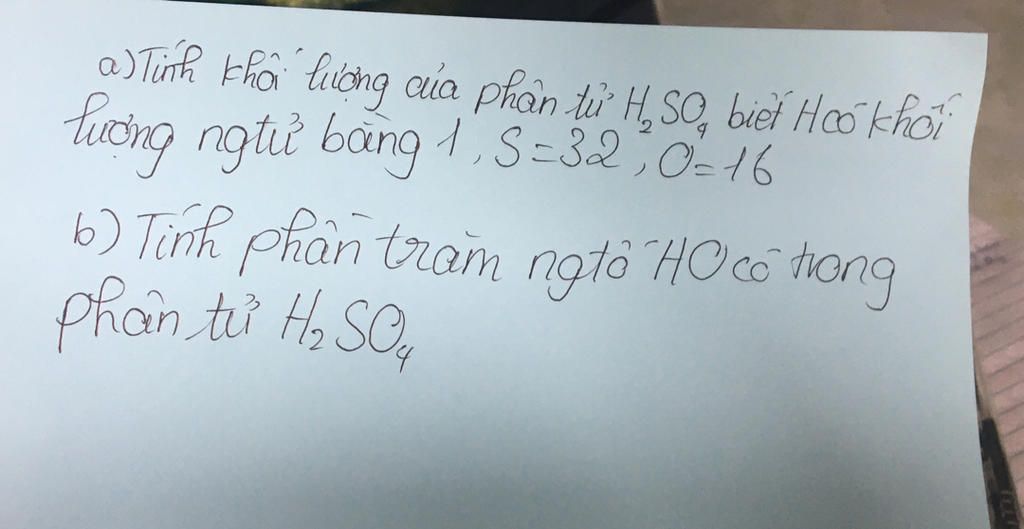 a) Tính khối lượng của phân tử H₂SO₄ biết H có khối
lượng ngtử bằng 1, S=32, O=16
b) Tính phần trăm ngtố HO có trong
phân tử H₂SO₄